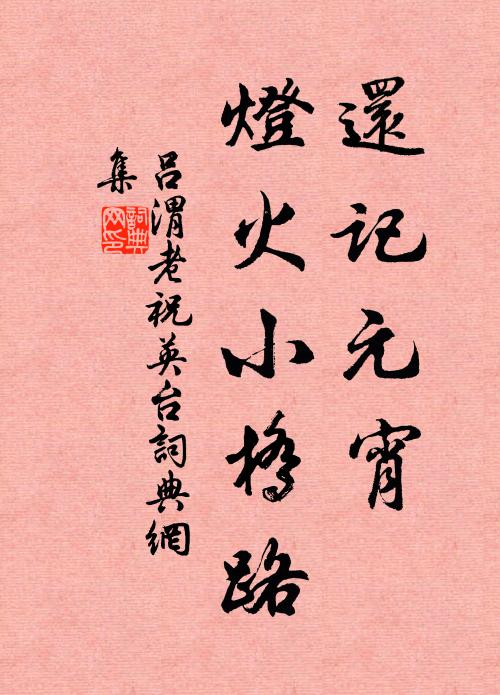 還記元宵
燈火小橋路
吕渭老祝英台詞典網
集
詞典
网印